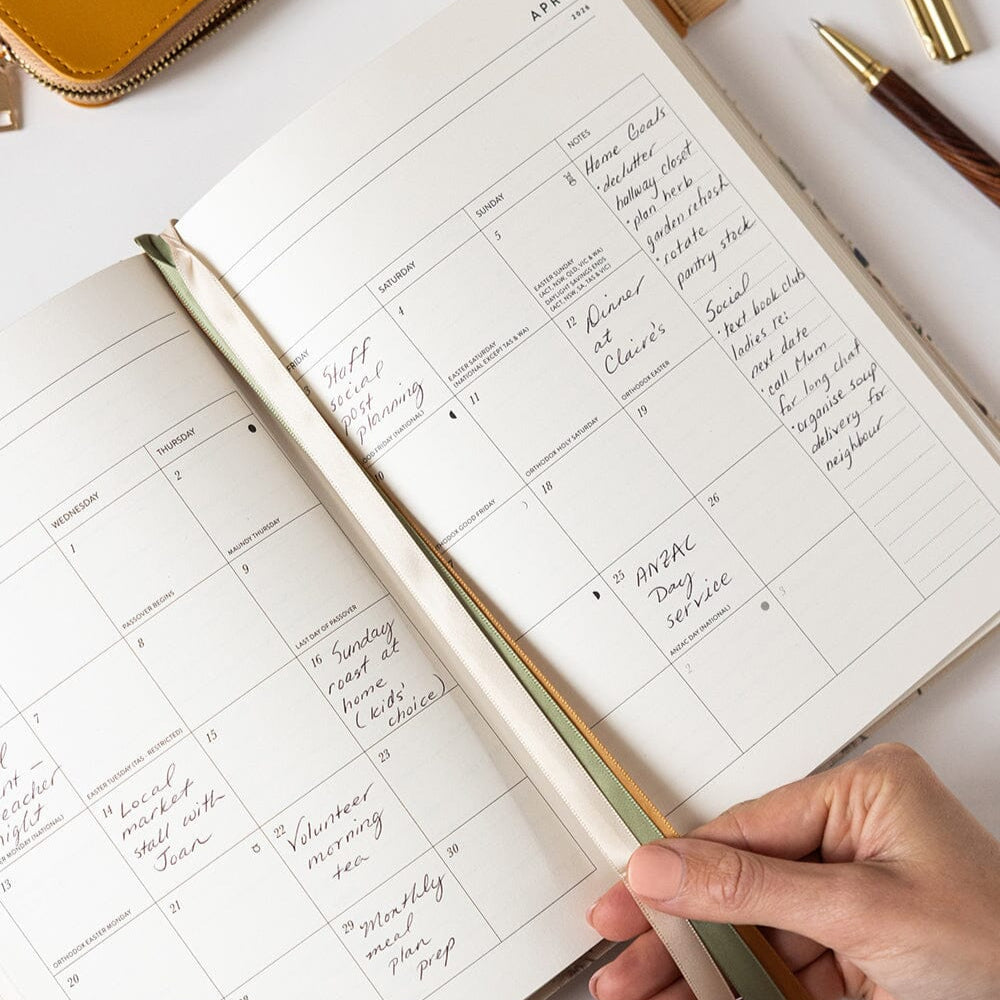 WEDNESDAY
THURSDAY
1
PASSOVER BEGINS
2
MAUNDY THURSDAY
7
EASTER TUESDAY (TAS - RESTRICTED)
8
9
LAST DAY OF PASSOVER
nt -
eacher
night
ER MONDAY (NATIONAL)
13
ORTHODOX EASTER MONDAY
14
Local
market
stall with
Joan
15
16
Sunday
roast at
home
(kids'
choice)
20
21
22
Volunteer
morning
tea
23
29
Monthly
meal
plan
prep
30
APR
2026
FRIDAY
SATURDAY
SUNDAY
NOTES
Staff
social
post
planning
OOD FRIDAY (NATIONAL)
4
EASTER SATURDAY
(NATIONAL EXCEPT TAS & WA)
5
EASTER SUNDAY
(ACT, NSW, QLD, VIC & WA)
DAYLIGHT SAVINGS ENDS
(ACT, NSW, SA, TAS & VIC)
10
THODOX GOOD FRIDAY
11
ORTHODOX HOLY SATURDAY
12
Dinner
at
Claire's
ORTHODOX EASTER
18
19
25
ANZAC
Day
service
ANZAC DAY (NATIONAL)
26
2
3
Home Goals
• declutter
hallway closet
• plan herb
garden refresh
• rotate
pantry stock
Social
• text book club
ladies re:
next date
• call Mum
for long chat
• organise soup
delivery for
neighbour